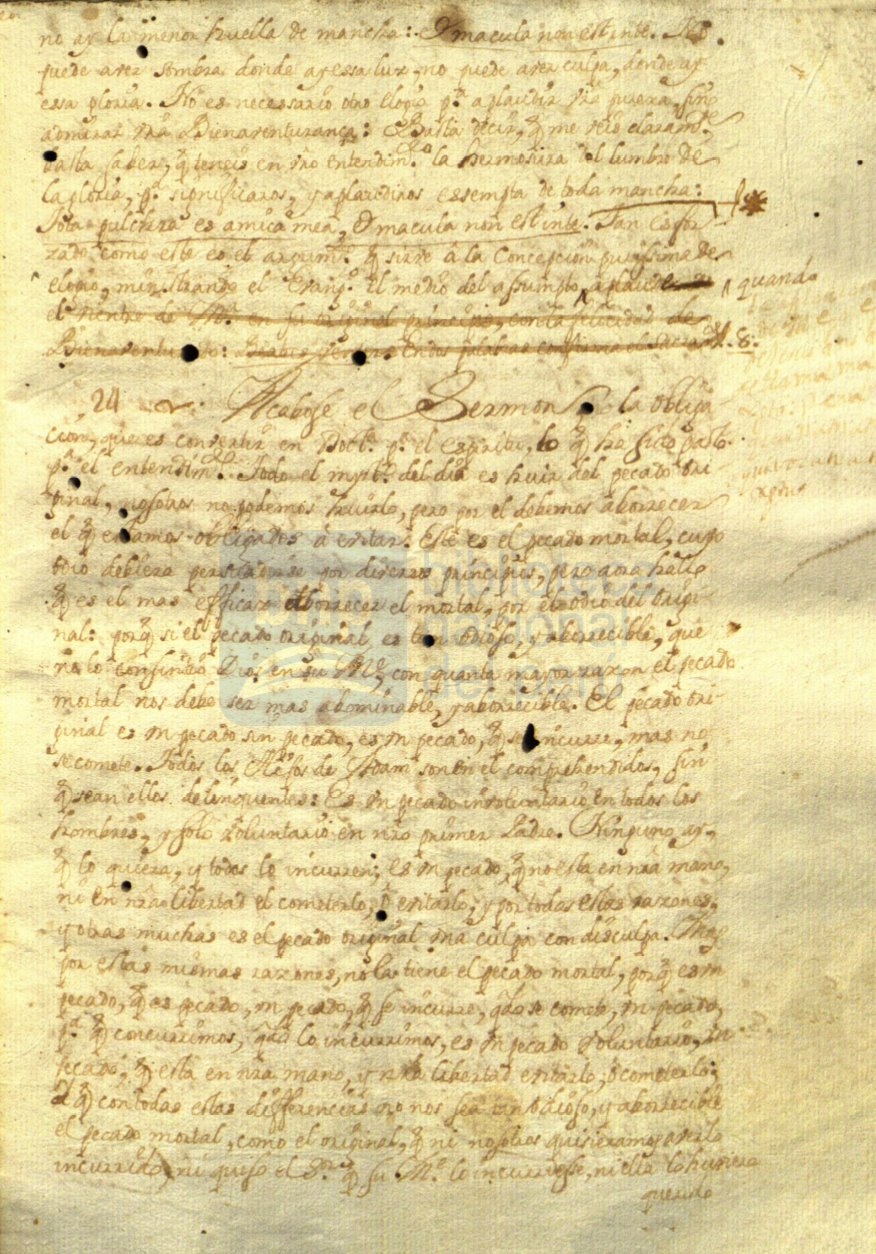 no ay la menor huella de mancha: Et macula non est in te. No
puede aver sombra donde ay essa luz, no puede aver culpa, donde ay
essa gloria. No es necessario otro elogio pª. aplaudir vrã pureza, sin
admirar vrã Bienaventurança: Basta decir, q̃ me veis claramte.
basta saber, q̃ teneis en vro entendimto. la hermosura del lumbre de
la gloria, pª. significaros, y aplaudiros essempta de toda mancha:
Tota pulchra es amica mea, et macula non est in te. Tan esfor
zado como este es el argumto. q̃ sirve à la Concepcion purissima de
elogio, ministrando el Evangº. el medio del assumpto, aplaude
quando
el vientre de Mª. en su original principio, con la felicidad de
Bienaventurado: Beatus venter. En dos palabras
24 Acabose el Sermon la obliga
cion, que es convertir en Doctª. pª. el espiritu, lo q̃ ha sido pasto
pª. el entendimto. Todo el mystº. del dia es huir del pecado ori
ginal, nosotros no podemos huirlo, pero por el debemos aborrecer
el q̃ estamos obligados à evitar. Este es el pecado mortal, cuyo
odio debiera persuadirse por diversos principios, pero aora hallo
q̃ es el mas efficaz aborrecer el mortal, por el odio del origi-
nal: porq̃ si el pecado original es tan odioso, y aborrecible, que
no lo consintió Dios en su Me. con quanta mayor razon el pecado
mortal nos debe ser mas abominable, y aborrecible. El pecado ori-
ginal es un pecado sin pecado, es un pecado, q̃ se incurre, mas no
se comete. Todos los Hijos de Adam son en el comprehendidos, sin
q̃ sean ellos delinquentes: Es un pecado involuntario en todos los
hombres, y solo voluntario en nro primer Padre. Ninguno ay,
q̃ lo quiera, y todos lo incurren; es un pecado, q̃ no esta en nrã mano,
ni en nrã libertad el cometerlo, ò evitarlo, y por todas estas razones,
y otras muchas es el pecado original una culpa con disculpa. Mas
por estas mismas razones, no la tiene el pecado mortal, porq̃ es un
pecado, q̃ es pecado, un pecado, q̃ se incurre, q̃do se comete, un pecado,
pª. q̃ concurrimos, q̃do lo incurrimos, es un pecado voluntario, un
pecado, q̃ està en nrã mano, y nrã libertad evitarlo, ò cometerlo;
q̃ con todas estas differencias no nos sea tan odioso, y aborrecible
el pecado mortal, como el original, q̃ ni nosotros quisieramos averlo
incurrido, ni quiso el Sr. q̃ su Me. lo incurriesse, ni ella lo huviera
querido
biblioteca
nacional
del perú